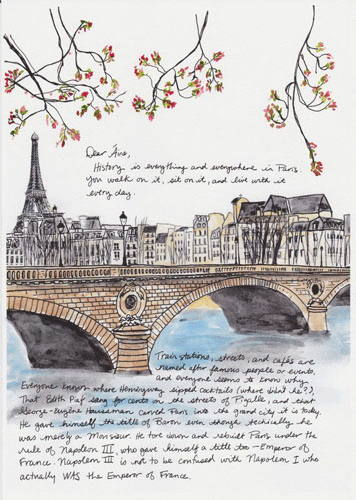 Dear Áine,
History is everything and everywhere in Paris.
You walk on it, sit on it, and live with it
every day.
Train stations, streets, and cafés are
named after famous people or events,
and everyone seems to know why.
Everyone knows where Hemingway sipped cocktails (where didn't he?),
That Edith Piaf sang for cents on the streets of Pigalle, and that
George-Eugène Haussman carved Paris into the grand city it is today.
He gave himself the title of Baron even though technically he
was merely a Monsieur. He tore down and rebuilt Paris under the
rule of Napoleon III, who gave himself a title too - Emperor of
France. Napoleon III is not to be confused with Napoleon I who
actually WAS the Emperor of France.